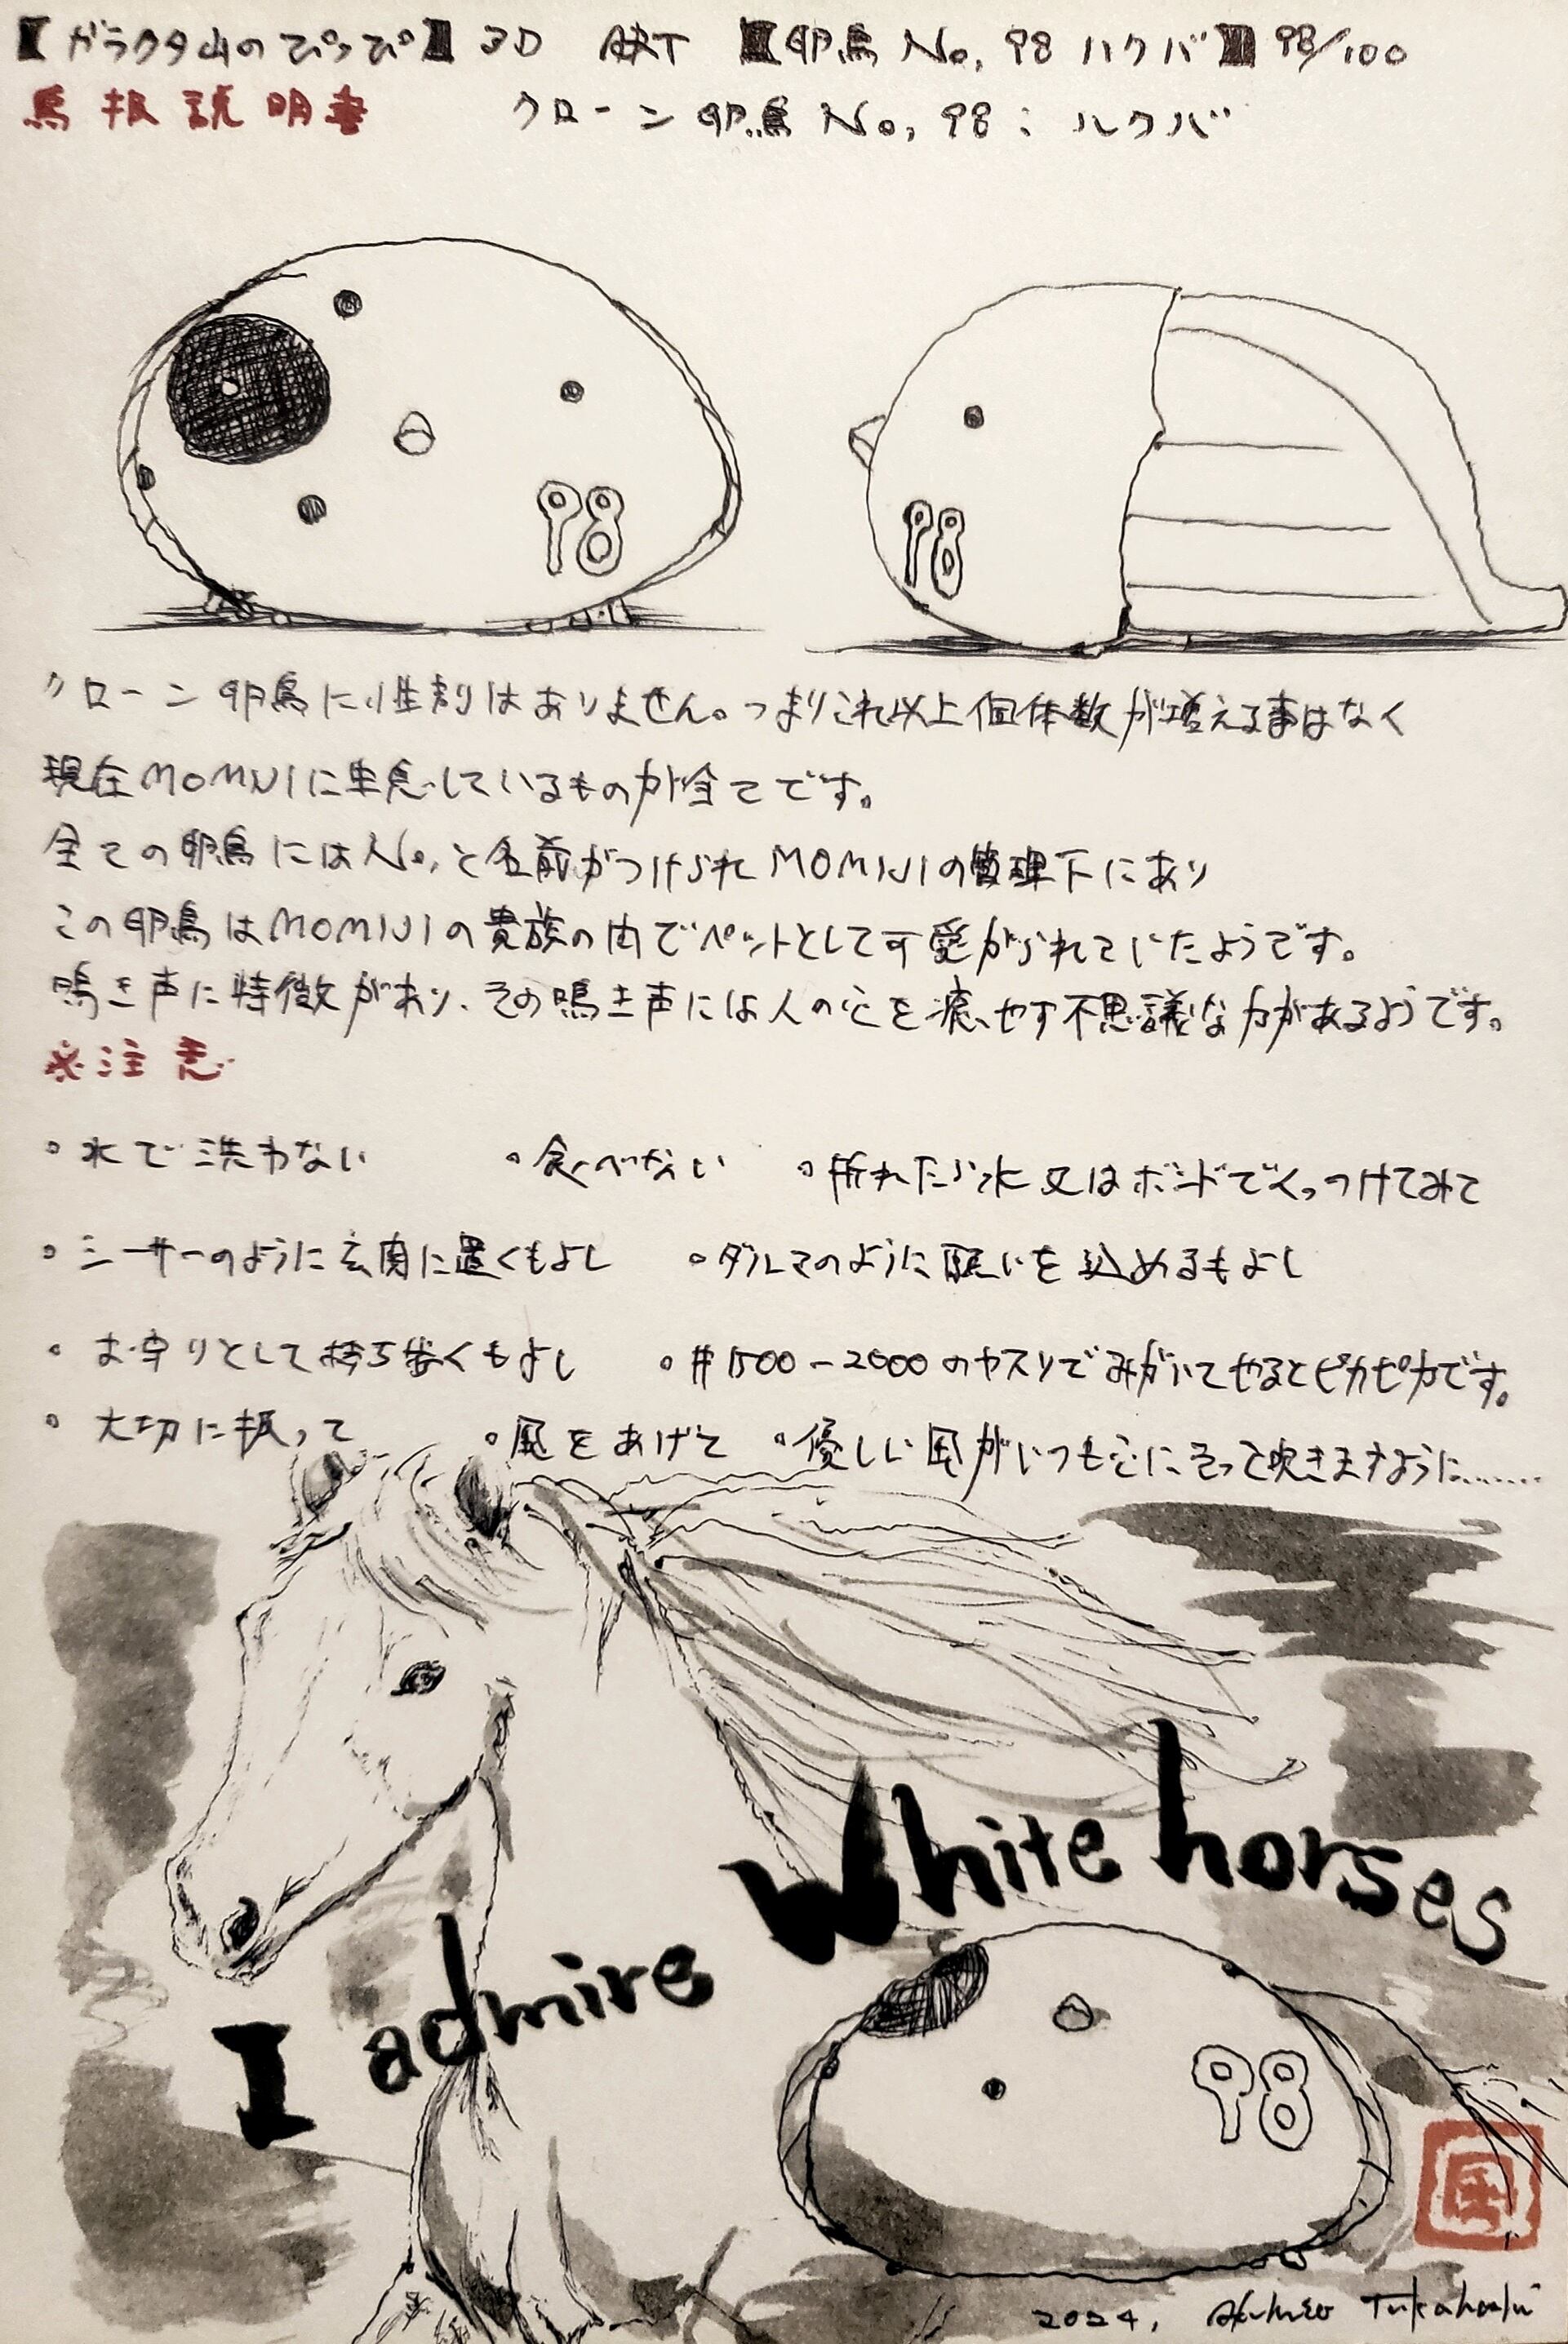 【ガラクタ山のぴっぴ】3D ART 【卵鳥 No, 98 ハクバ】98/100
鳥扱説明書 クローン卵鳥 No, 98 : ハクバ
98
98
クローン卵鳥に性別はありません。つまりこれ以上個体数が増える事はなく
現在MOMIJIに生息しているものが全てです。
全ての卵鳥にはNo,と名前がつけられMOMIJIの管理下にあり
この卵鳥はMOMIJIの貴族の内でペットとして可愛がられていたようです。
鳴き声に特徴があり、その鳴き声には人の心を癒やす不思議な力があるようです。
※注意
・水で洗わない ・食べない ・折れたら水又はボンドでくっつけてみて
・シーサーのように玄関に置くもよし ・ダルマのように願いを込めるもよし
・お守りとして持ち歩くもよし ・#1500-2000のヤスリでみがいてやるとピカピカです。
・大切に扱って ・風をあげて ・優しい風がいつも心にそっと吹きますように......
I admire White horses
98
風
2024,